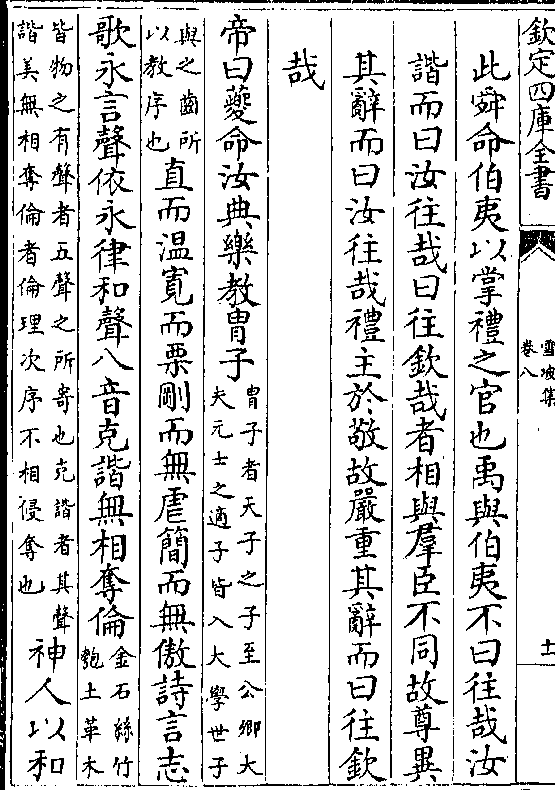 欽定四庫全書
雪坡集
卷八
十
此舜命伯夷以掌禮之官也禹與伯夷不曰往哉汝
諧而曰汝往哉曰往欽哉者相與羣臣不同故尊異
其辭而曰汝往哉禮主於敬故嚴重其辭而曰往欽
哉
帝曰夔命汝典樂教胄子
胄子者天子之子至公卿大
夫元士之適子皆入大學世子
與之齒所
以教序也
直而温寛而栗剛而無虐簡而無傲詩言志
歌永言聲依永律和聲八音克諧無相奪倫
金石絲竹
匏土革木
皆物之有聲者五聲之所寄也克諧者其聲
諧美無相奪倫者倫理次序不相侵奪也
神人以和